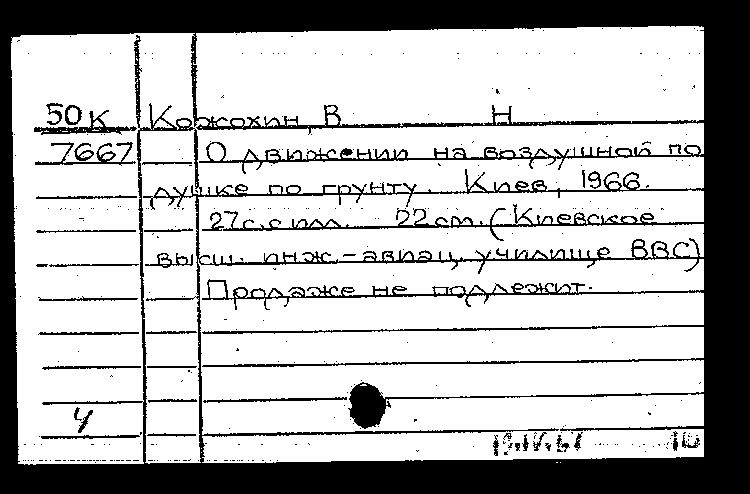 50к Кожохин, В Н
7667 О движении на воздушной по
душке по грунту. Киев, 1966.
27с.с илл. 22 см. (Киевское
высш. инж.-авиац. училище ВВС)
Продаже не подлежит.
4